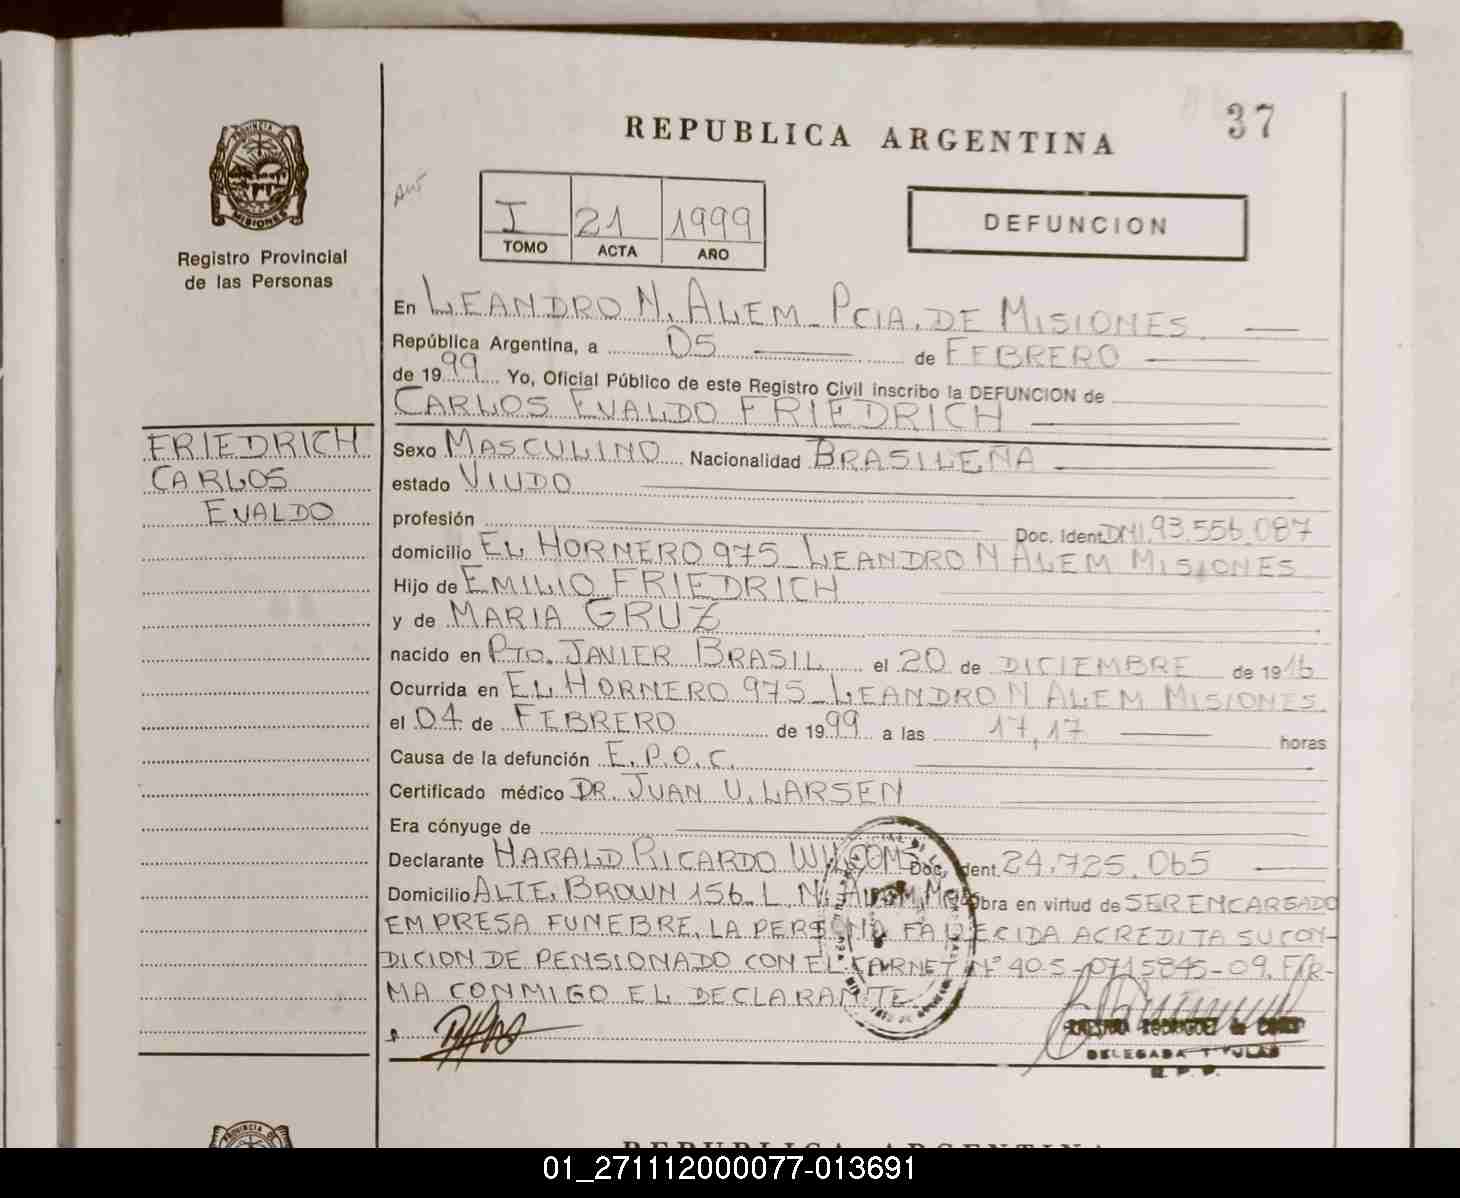 37
REPUBLICA ARGENTINA
PROVINCIA DE
MISIONES
Registro Provincial
de las Personas
I 21 1999
TOMO ACTA AÑO
DEFUNCION
En LEANDRO N. ALEM_ PCIA. DE MISIONES
República Argentina, a 05 de FEBRERO
de 1999 Yo, Oficial Público de este Registro Civil inscribo la DEFUNCION de
CARLOS EVALDO FRIEDRICH
FRIEDRICH
CARLOS
EVALDO
Sexo MASCULINO Nacionalidad BRASILEÑA
estado VIUDO
profesión Doc. Ident. DNI. 93.556.087
domicilio EL HORNERO 975_ LEANDRO N ALEM MISIONES
Hijo de EMILIO FRIEDRICH
y de MARIA GRUZ
nacido en PTO. JAVIER BRASIL el 20 de DICIEMBRE de 1916
Ocurrida en EL HORNERO 975_ LEANDRO N ALEM MISIONES.
el 04 de FEBRERO de 1999 a las 17,17 horas
Causa de la defunción E.P.O.C.
Certificado médico DR. JUAN V. LARSEN
Era cónyuge de
Declarante HARALD RICARDO Doc. Ident. 24.725.065
Domicilio ALTE. BROWN 156_ L. N. ALEM, Obra en virtud de SER ENCARGADO
EMPRESA FUNEBRE, LA PERSONA FALLECIDA ACREDITA SU CON-
DICION DE PENSIONADO CON EL CARNET Nº 40-5-0715845-09. FIR-
MA CONMIGO EL DECLARANTE
RODRIGUEZ de
DELEGADA TITULAR
R. P. P.
PROVINCIA DE
REPUBLICA ARGENTINA
01_271112000077-013691